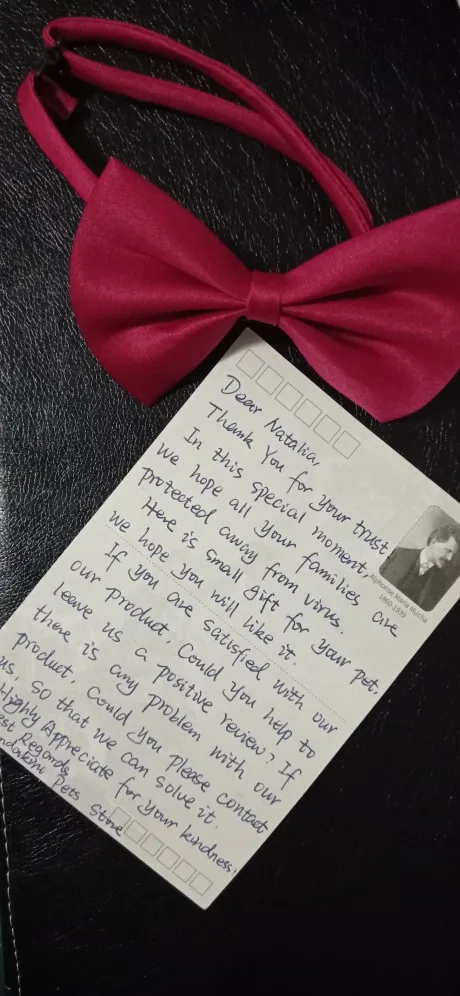 Dear Natalia,
Thank You for your trust
In this special moment,
we hope all your families are
protected away from virus.
Here is small gift for your pet.
we hope you will like it.
If you are satisfied with our
our product. Could you help to
leave us a positive review? If
there is any problem with our
product, Could you please contact
us, so that we can solve it.
Highly Appreciate for your kindness!
Regards
Pets Store
Alphonse Maria Mucha
1860-1939